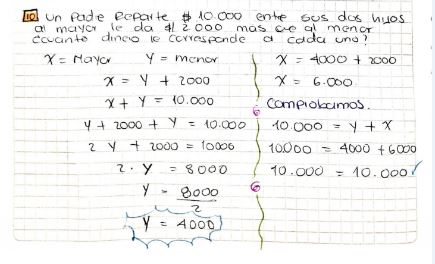 10 Un Padre Reparte $ 10.000 entre sus dos hijos
al mayor le da $ 2000 mas que al menor
cuanto dinero le corresponde a cada uno?
X = Mayor Y = menor
X = Y + 2000
X + Y = 10.000
Y + 2000 + Y = 10.000
2 Y + 2000 = 10000
2 · Y = 8000
Y = 8000
2
Y = 4000
X = 4000 + 2000
X = 6.000
Comprobamos.
10.000 = Y + X
10.000 = 4000 + 6000
10.000 = 10.000 ✓